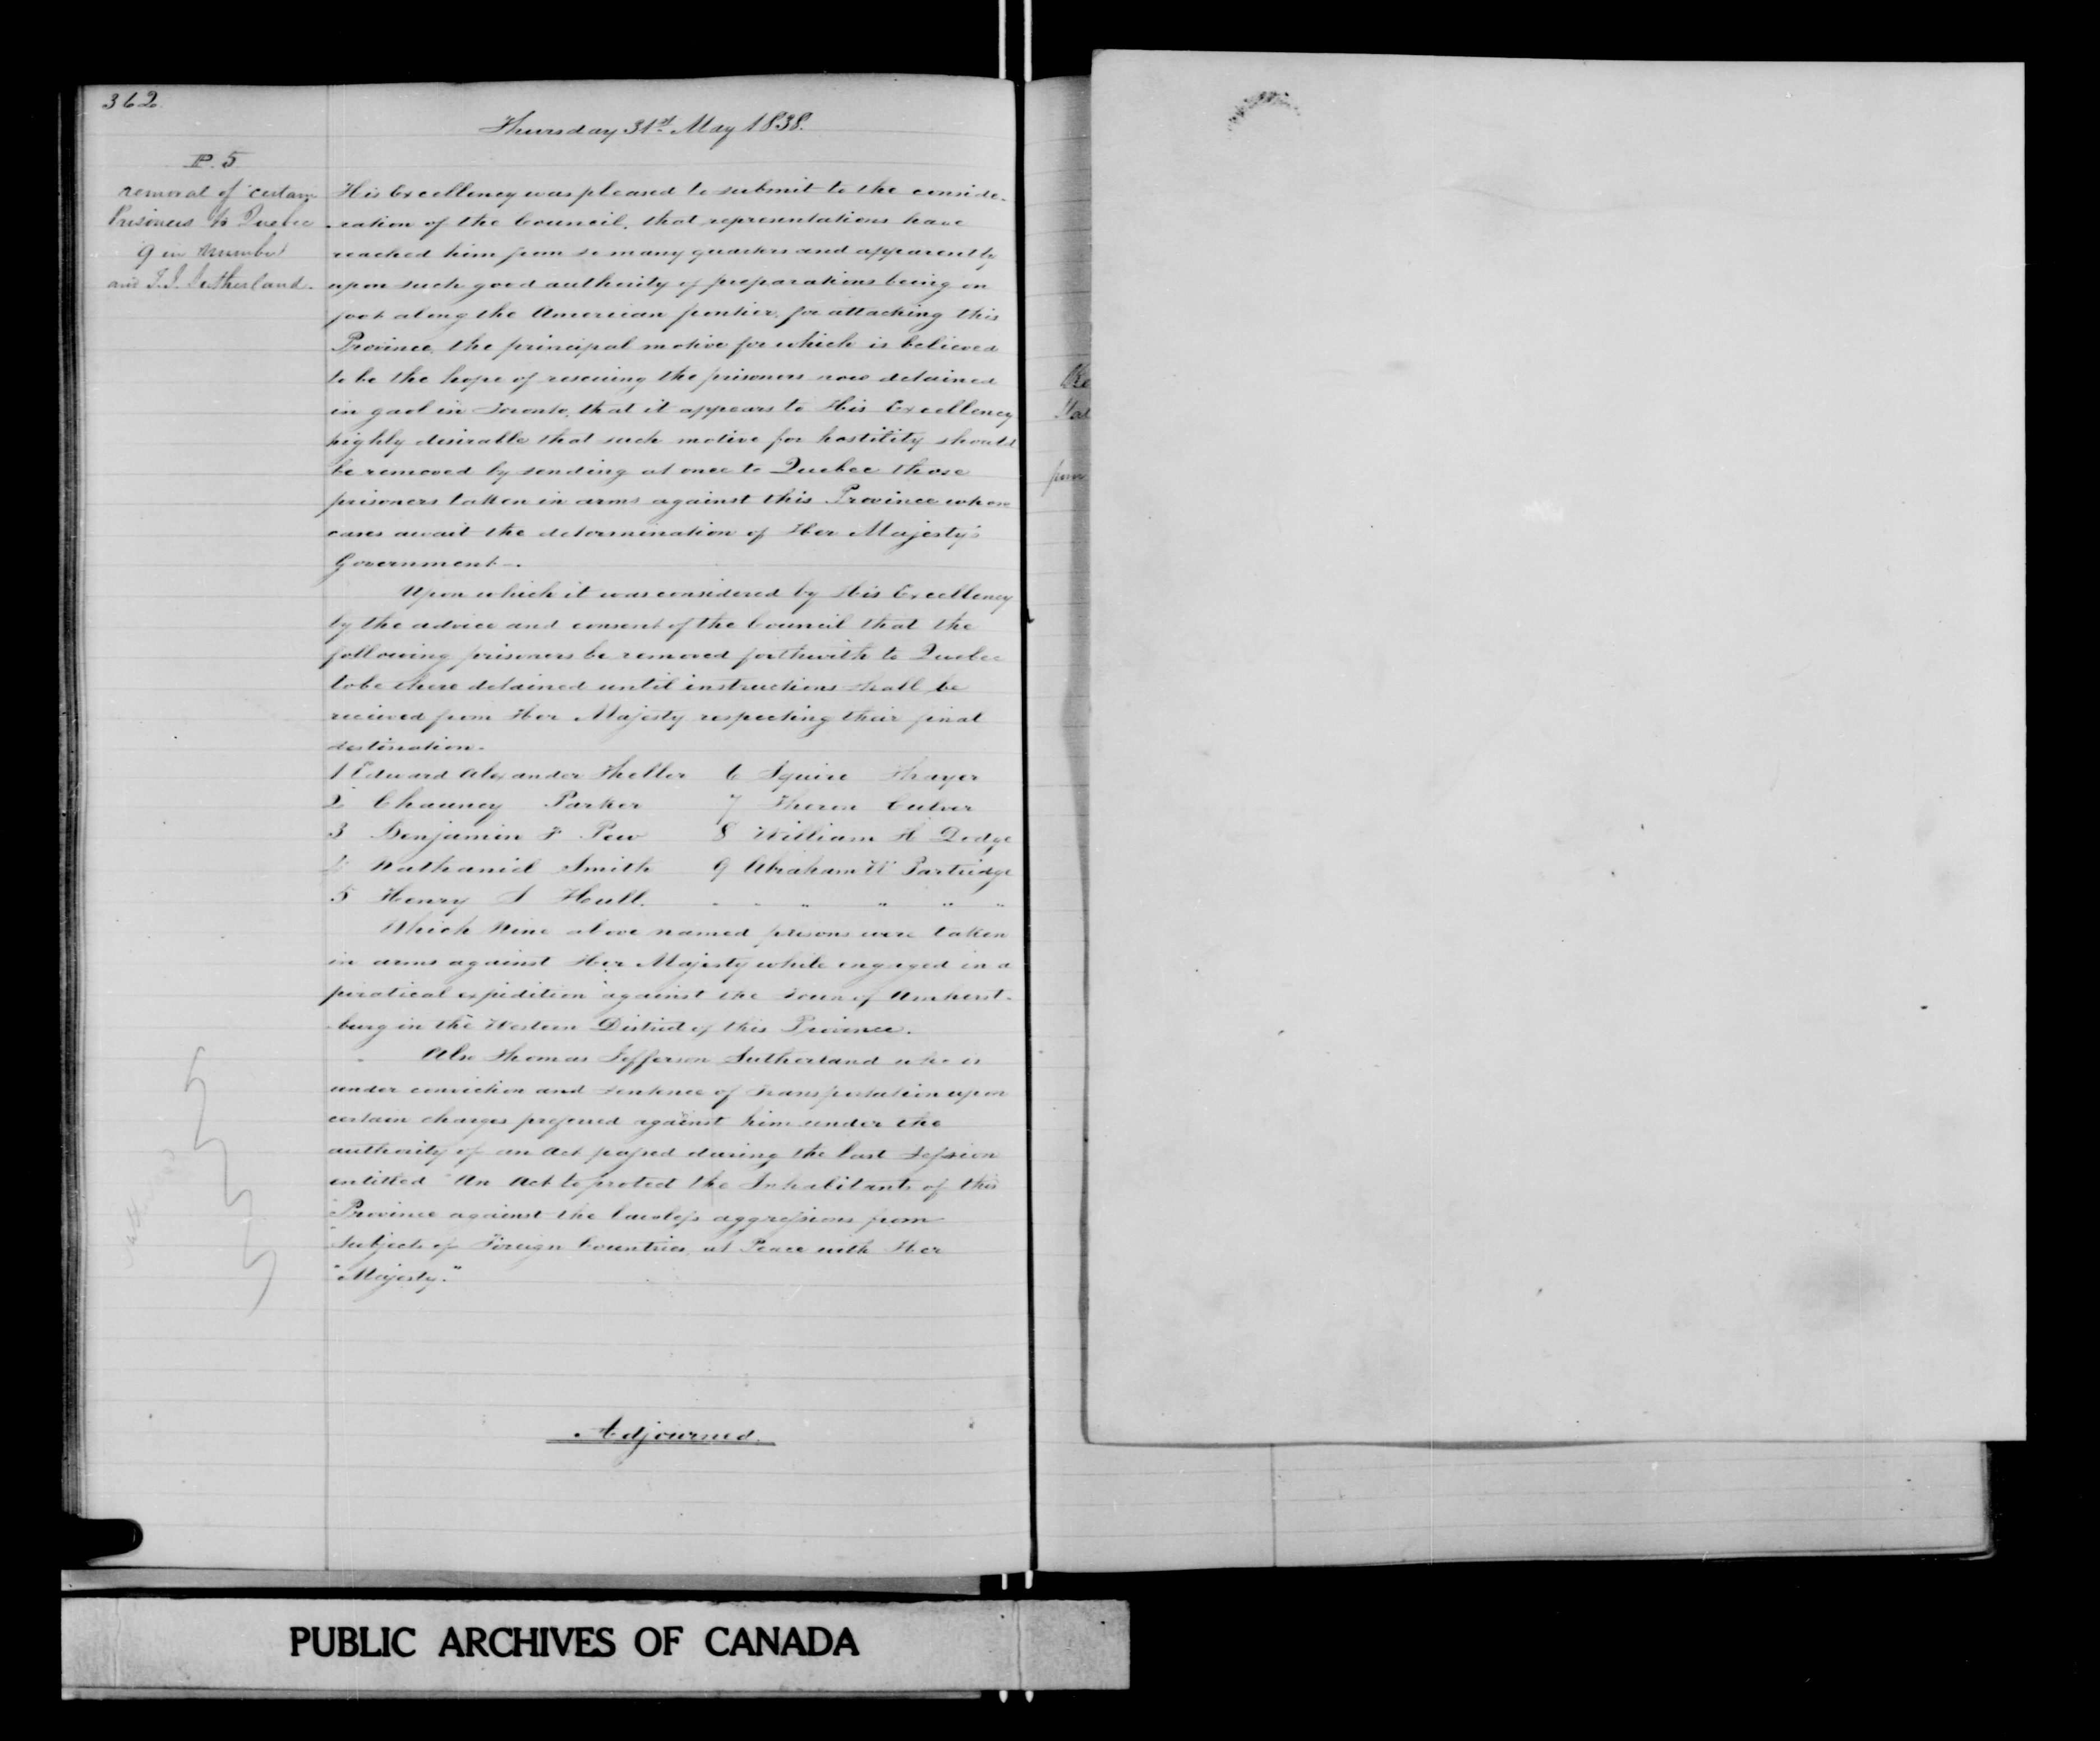 362
Thursday 31st May 1838.
P. 5
removal of certain
Prisoners to Quebec
9 in number
and T. J. Sutherland.
His Excellency was pleased to submit to the conside-
-ration of the Council, that representations have
reached him from so many quarters and apparently
upon such good authority of preparations being on
foot along the American frontier, for attacking this
Province, the principal motive for which is believed
to be the hope of rescuing the prisoners now detained
in gaol in Toronto, that it appears to His Excellency
highly desirable that such motive for hostility should
be removed by sending at once to Quebec those
prisoners taken in arms against this Province whose
cases await the determination of Her Majesty's
Government.
Upon which it was considered by His Excellency
by the advice and consent of the Council that the
following prisoners be removed forthwith to Quebec
to be there detained until instructions shall be
recieved from Her Majesty respecting their final
destination.
1 Edward Alexander Theller 6 Squire Thayer
2 Chauncy Parker 7 Theron Culver
3 Benjamin F Pew 8 William H Dodge
4 Nathaniel Smith 9 Abraham W Partridge
5 Henry S Hull.
Which Nine above named prisons were taken
in arms against Her Majesty while engaged in a
piratical expedition against the Town of Amherst-
-burg in the Western District of this Province.
Also Thomas Jefferson Sutherland who is
under conviction and sentence of Transportation upon
certain charges preferred against him under the
authority of an Act passed during the last Session
entitled "An Act to protect the Inhabitants of this
"Province against the lawless aggressions from
"Subjects of Foreign Countries, at Peace with Her
"Majesty."
Adjourned.
PUBLIC ARCHIVES OF CANADA